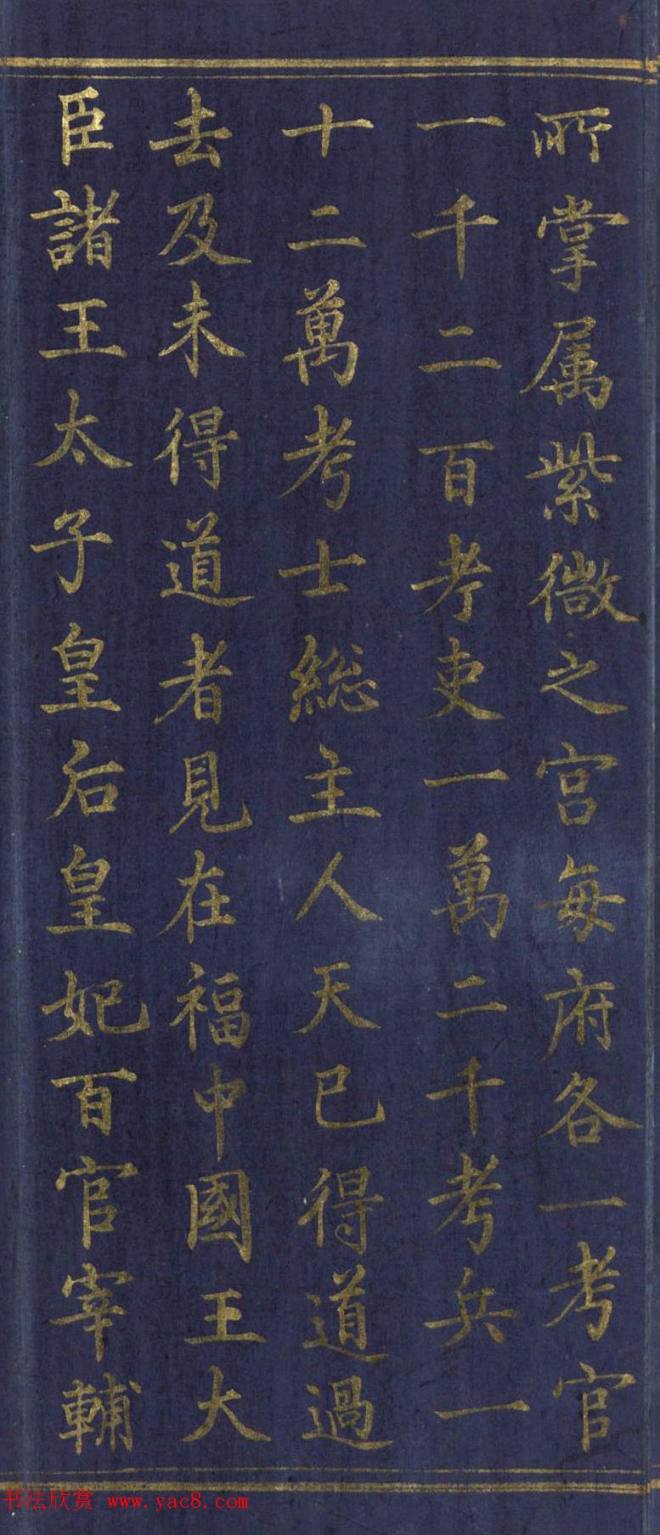 所掌属紫微之宫每府各一考官
一千二百考吏一萬二千考兵一
十二萬考士総主人天已得道過
去及未得道者見在福中國王大
臣諸王太子皇后皇妃百官宰輔
书法欣赏 www.yac8.com